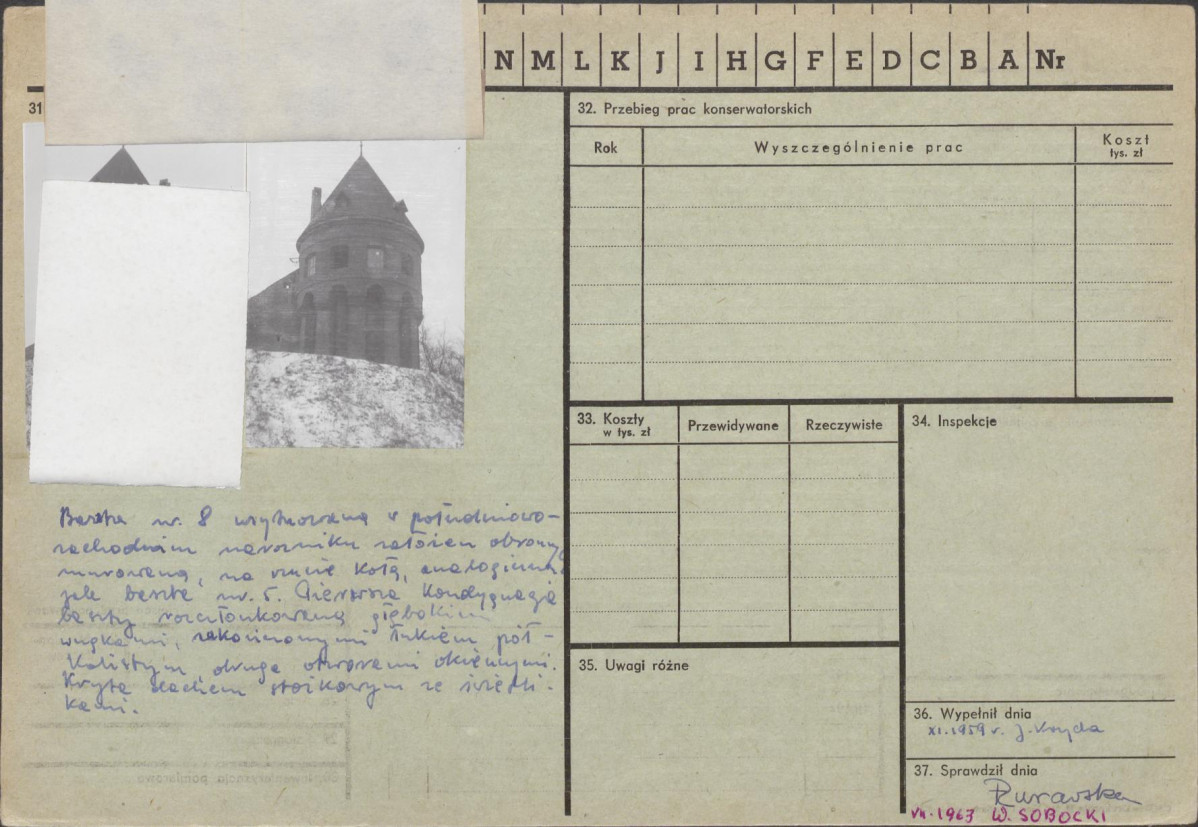 N M L K J I H G F E D C B A Nr
31
32. Przebieg prac konserwatorskich
Rok
Wyszczególnienie prac
Koszt
tys. zł
33. Koszty
w tys. zł
Przewidywane
Rzeczywiste
34. Inspekcje
Baszta nr. 8 usytuowana w południowo-
zachodnim narożniku założeń obronnych
murowana, na rzucie koła, analogiczna
jak baszta nr. 5. Pierwsza kondygnacja
baszty rozczłonkowana głębokimi
wnękami, zakończonymi łukiem pół-
kolistym druga otworami okiennymi.
Kryta dachem stożkowym ze świetli-
kami.
35. Uwagi różne
36. Wypełnił dnia
XI.1959 r. J.
37. Sprawdził dnia
VII.1963 W. SOBOCKI